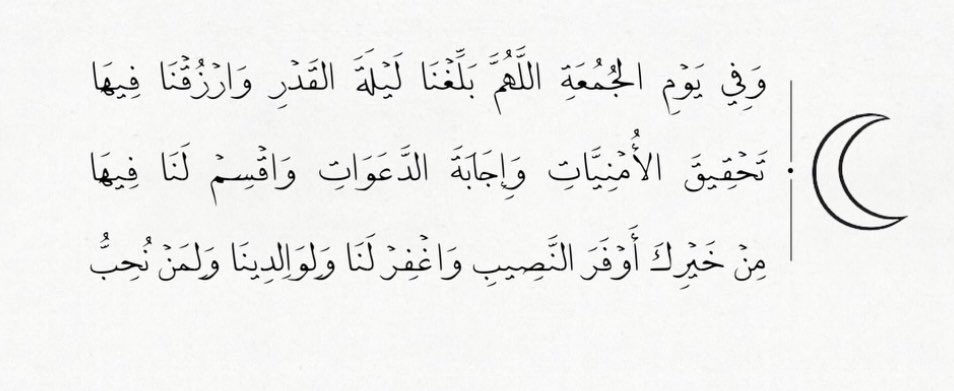 وَفِي يَوْمِ الجُمُعَةِ اللَّهُمَّ بَلِّغْنَا لَيلَةَ القَدْرِ وَارْزُقْنَا فِيهَا
تَحْقِيقَ الأُمْنِيَّاتِ وَإِجَابَةَ الدَّعَوَاتِ وَاقْسِمْ لَنَا فِيهَا
مِنْ خَيْرِكَ أَوْفَرَ النَّصِيبِ وَاغْفِرْ لَنَا وَلِوَالِدِينَا وَلِمَنْ نُحِبُّ